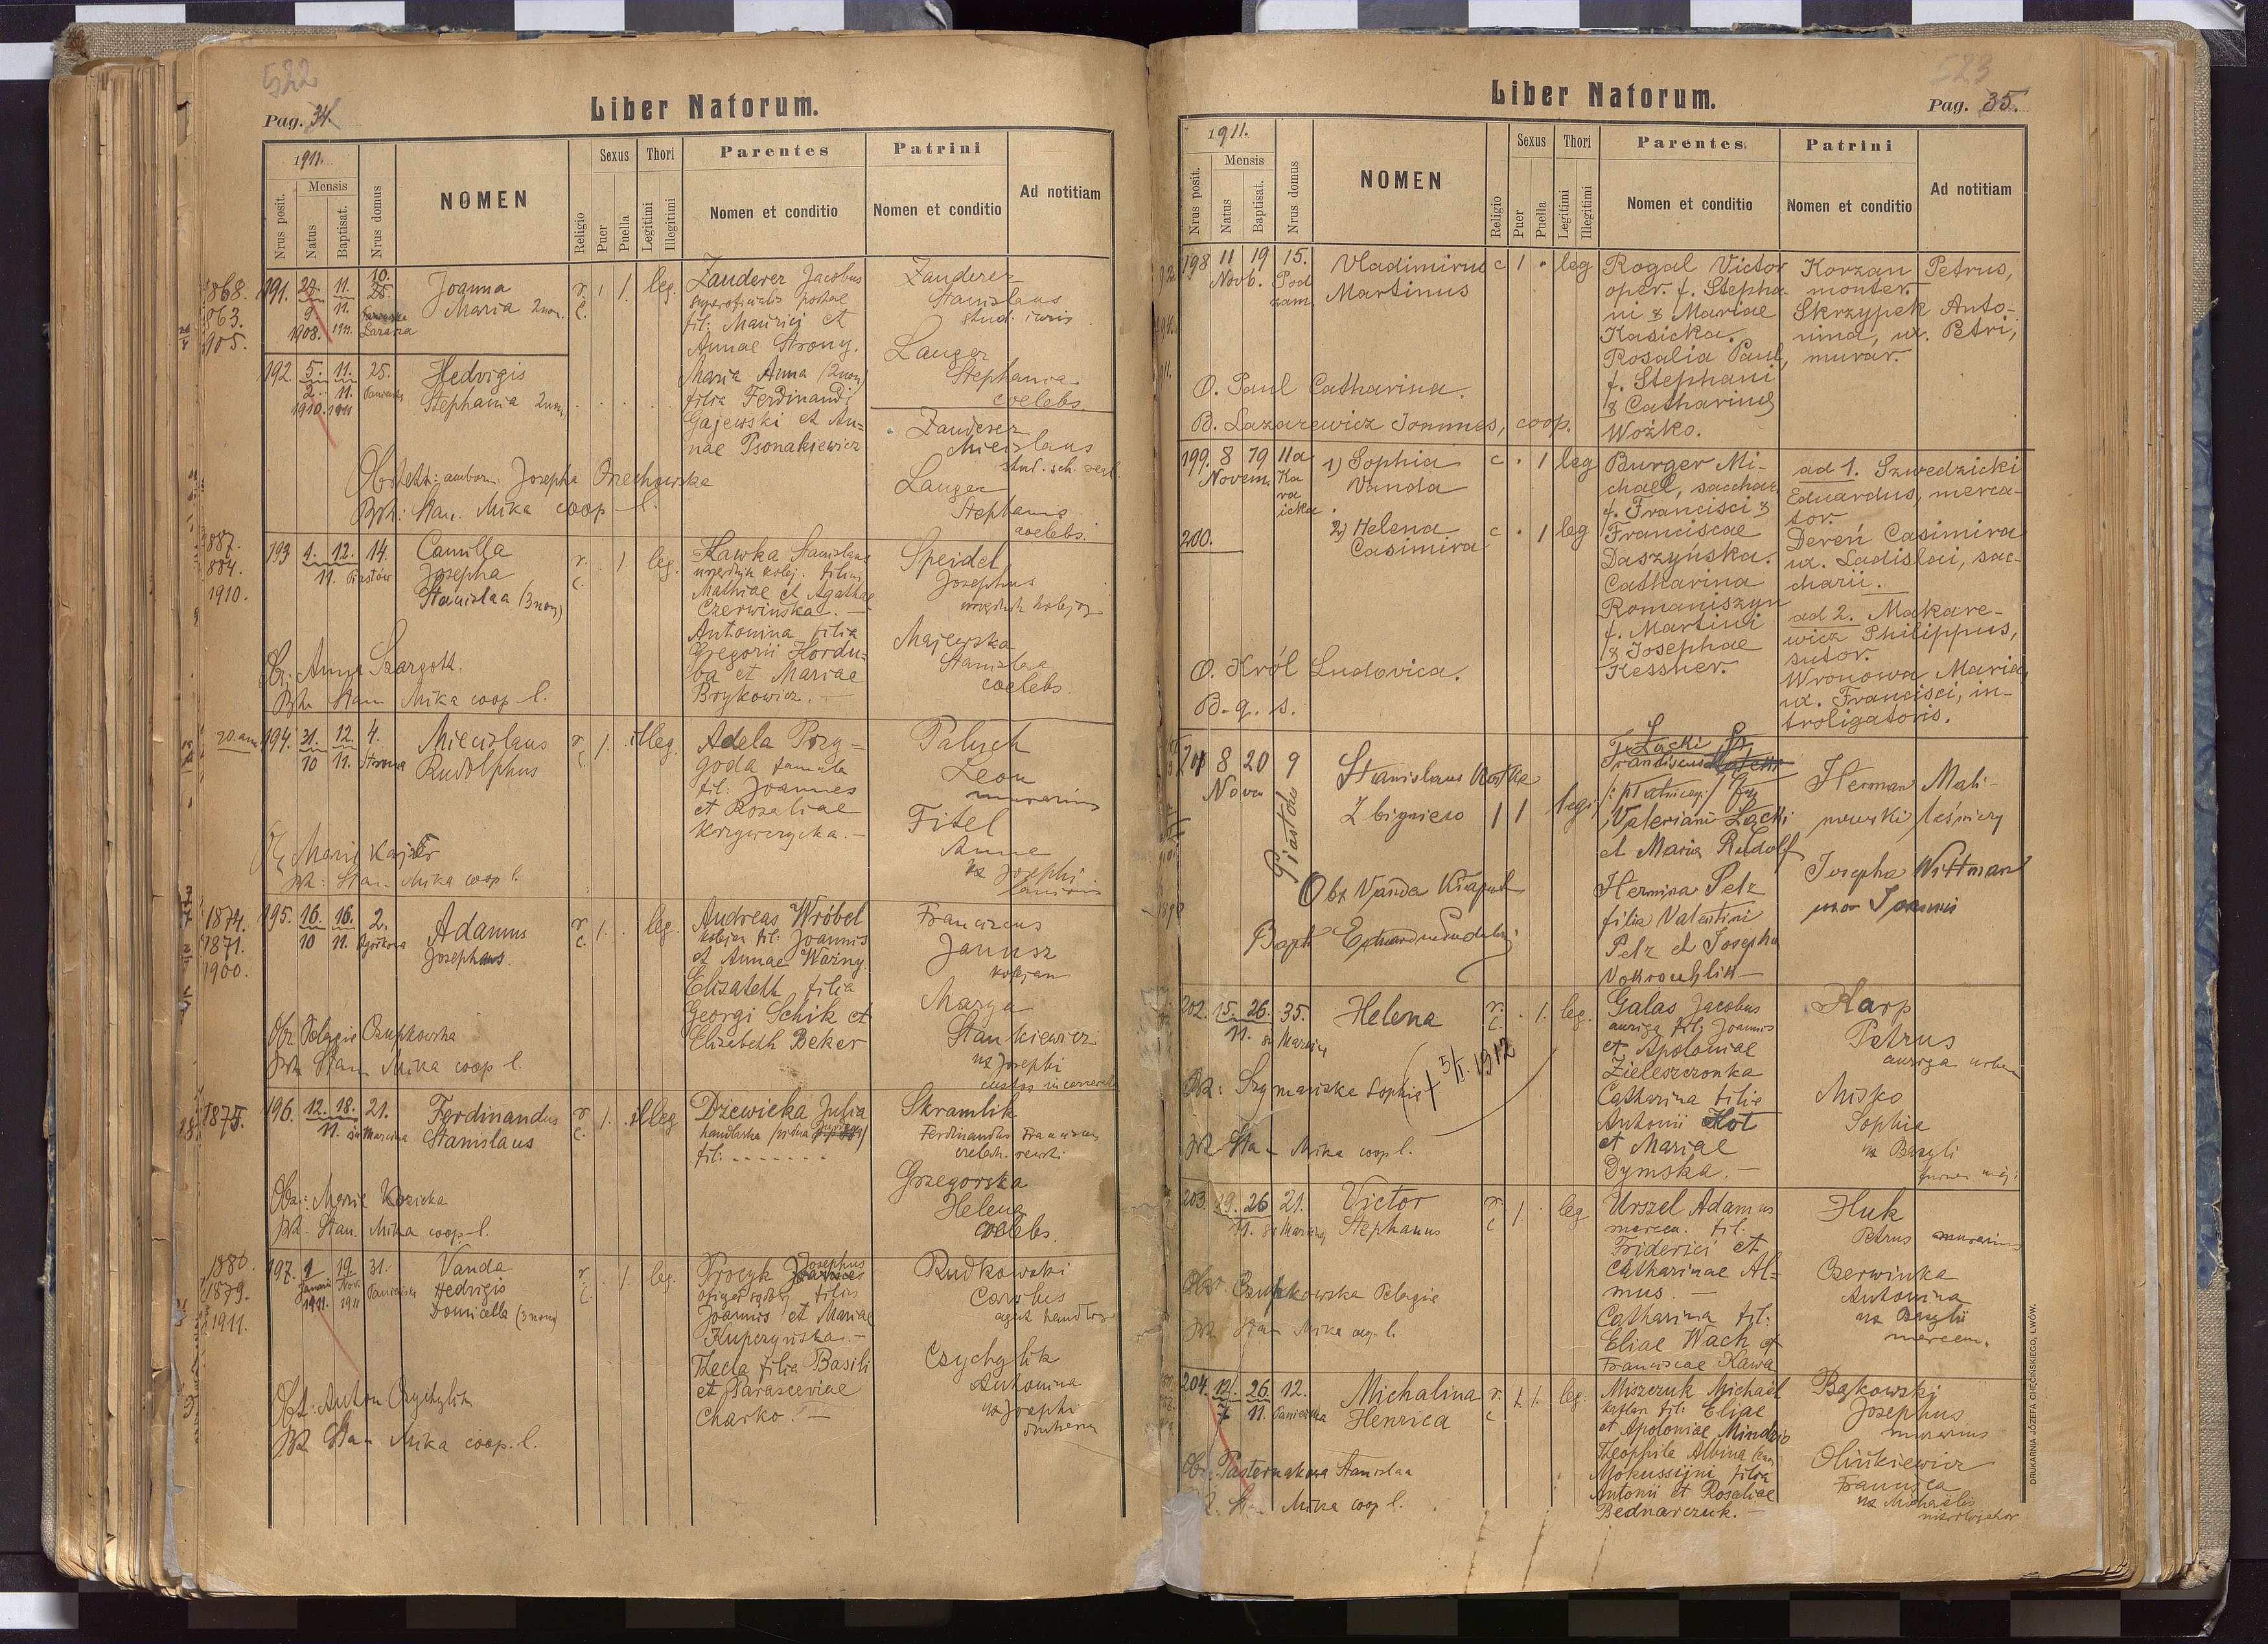 522
Liber Natorum.
Pag. 34.
1911.
Mensis
Nrus posit.
Natus
Baptisat.
Nrus domus
NOMEN
Religio
Sexus
Puer
Puella
Thori
Legitimi
Illegitimi
Parentes
Nomen et conditio
Patrini
Nomen et conditio
Ad notitiam
1868.
1863.
1905.
191. 27. 11. 10.
9 11.
1908. 1911.
Joanna
Maria 2nom.
r. c. 1. leg.
Zanderer Jacobus
fil: Mauricii et
Annae Strony.
Maria Anna (2nom)
filia Ferdinandi
Gajewski et An-
nae Psonakiewicz
Zanderer
Stanislaus
stud. iuris
Langer
Stephania
coelebs.
192. 5. 11. 25.
2. 11.
1910. 1911
Hedvigis
Stephania 2nom.
Zanderer
Miecislaus
stud. sch. real.
Langer
Stephania
coelebs.
Obstetr: ambom. Josepha Orzechowska
Bpt: Stan. Mika coop. l.
1887.
1884.
1910.
193 1. 12. 14.
11. Piastów
Camilla
Josepha
Stanislaa (3nom)
r. c. 1. leg.
Kawka Stanislaus
urzędnik kolej. filius
Mathiae et Agathae
Czerwińska. —
Antonina filia
Gregorii Hordu-
ba et Mariae
Brykowicz. —
Speidel
Josephus
urzędnik kolejow
Majewska
Stanislaa
coelebs.
Ob: Anna Szargott.
Bpt. Stan. Mika coop l.
194. 31. 12. 4.
10 11.
Miecislaus
Rudolphus
r. c. 1. illeg.
Adela Przy-
goda famula
fil: Joannes
et Rosaliae
Krzywczycka. —
Paluch
Leon
murarius
Fitel
Anna
ux Josephi
Bpt: Stan. Mika coop l.
1874.
1871.
1900.
195. 16. 16. 2.
10 11.
Adamus
Josephus
r. c. 1. leg.
Andreas Wróbel
kolejarz fil: Joannis
et Annae Warny
Elisabeth filia
Georgi Schik et
Elisabeth Beker
Franciscus
Janusz
kolejarz
Marya
Stankiewicz
ux Josephi
Obz Pelagie Czupkowska
Bpt Stan Mika coop l.
1875.
196. 12. 18. 21.
11. św Marcina
Ferdinandus
Stanislaus
r. c. 1. illeg
Dżewicka Julia
fil: - - - - - - -
Skramlik
Ferdinandus Franciscus
Grzegorska
Helena
coelebs.
Obz: Maria Kozicka
Bpt. Stan. Mika coop. l.
1880.
1879.
1911.
197. 9 19 31.
Nov.
1911. 1911
Vanda
Hedvigis
Domicella (3nom)
r. c. 1. leg.
Procyk Josephus
filius
Joannis et Mariae
Kuperzyńska. —
Thecla filia Basili
et Parasceviae
Charko. —
Rudkowski
Carolus
agent handlow
Czychylik
Antonina
ux Josephi
Obst: Anton Czychylik
Bpt Stan Mika coop. l.
523
Liber Natorum.
Pag. 35.
1911.
Mensis
Nrus posit.
Natus
Baptisat.
Nrus domus
NOMEN
Religio
Sexus
Puer
Puella
Thori
Legitimi
Illegitimi
Parentes
Nomen et conditio
Patrini
Nomen et conditio
Ad notitiam
198 11 19 15.
Novb. Pod
zam.
Vladimirus
Martinus
c 1 . leg
Rogal Victor
oper. f. Stepha-
ni & Mariae
Kasicka.
Rosalia Paul,
f. Stephani
& Catharinae
Woźko.
Korzan Petrus,
monter.
Skrzypek Anto-
nina, ux. Petri,
murar.
O. Paul Catharina.
B. Lazarewicz Joannes, coop.
199. 8 19 11a
Novem. Ka
ra
icka.
1) Sophia
Vanda
c . 1 leg
200.
2) Helena
Casimira
c . 1 leg
Burger Mi-
chael, sacchar,
f. Francisci &
Franciscae
Daszyńska.
Catharina
Romaniszyn
f. Martini
& Josephae
Kessner.
ad 1. Szwedzicki
Eduardus, merca-
tor.
Dereń Casimira
ux. Ladislai, sac-
charii.
ad 2. Makare-
wicz Philippus,
sutor.
Wronowa Maria,
ux. Francisci, in-
troligatoris.
O. Król Ludovica.
B. q. s.
201 8 20 9
Nove
Piastów
Stanislaus Kostka
Zbigniew
1 1 legi
Łącki Fr
Franciscus
Valeriani Łącki
et Maria Rudolf
Hermina Pelz
filia Valentini
Pelz et Josepha
Vokrouhlik—
Herman Mali-
nowski leśniczy
Josepha Wittman
uxor Joannis
Obz Vanda Knapik
Bapt
202. 15. 26. 35.
11. św Marcina
Helena
r. c. . 1. leg.
Galas Jacobus
auriga fil: Joannis
et Apoloniae
Zieleszczonka
Catharina filia
Antonii Kot
et Mariae
Dymska. —
Karp
Petrus
auriga urban
Misko
Sophia
ux Bazyli
Obz: Szymańska Sophie
† 5/I. 1912
Bpt Stan Mika coop l.
203. 19. 26 21.
11. św Marcina
Victor
Stephanus
r. c 1. . leg
Urszel Adamus
mercen. fil.
Friderici et
Catharinae Al-
mus. —
Catharina fil:
Eliae Wach et
Franciscae Kawa
Huk
Petrus murarius
Czerwinka
Antonina
ux Bazylii
mercen.
Obz. Czupkowska Pelagie
Bpt Stan Mika coop. l.
204. 12. 26 12.
7 11. Panieńska
Michalina
Henrica
r. c 1. leg.
Miszczuk Michael
kaflarz fil: Eliae
et Apoloniae Mindzio
Theophila Albina
Mokussijni filia
Antonii et Rosaliae
Bednarczuk. —
Bąkowski
Josephus
murarius
Olińkiewicz
Francisca
ux Michaelis
Obz: Pasternakowa Stanislaa
Bpt. Stan Mika coop l.
DRUKARNIA JÓZEFA CHĘCIŃSKIEGO, LWÓW.